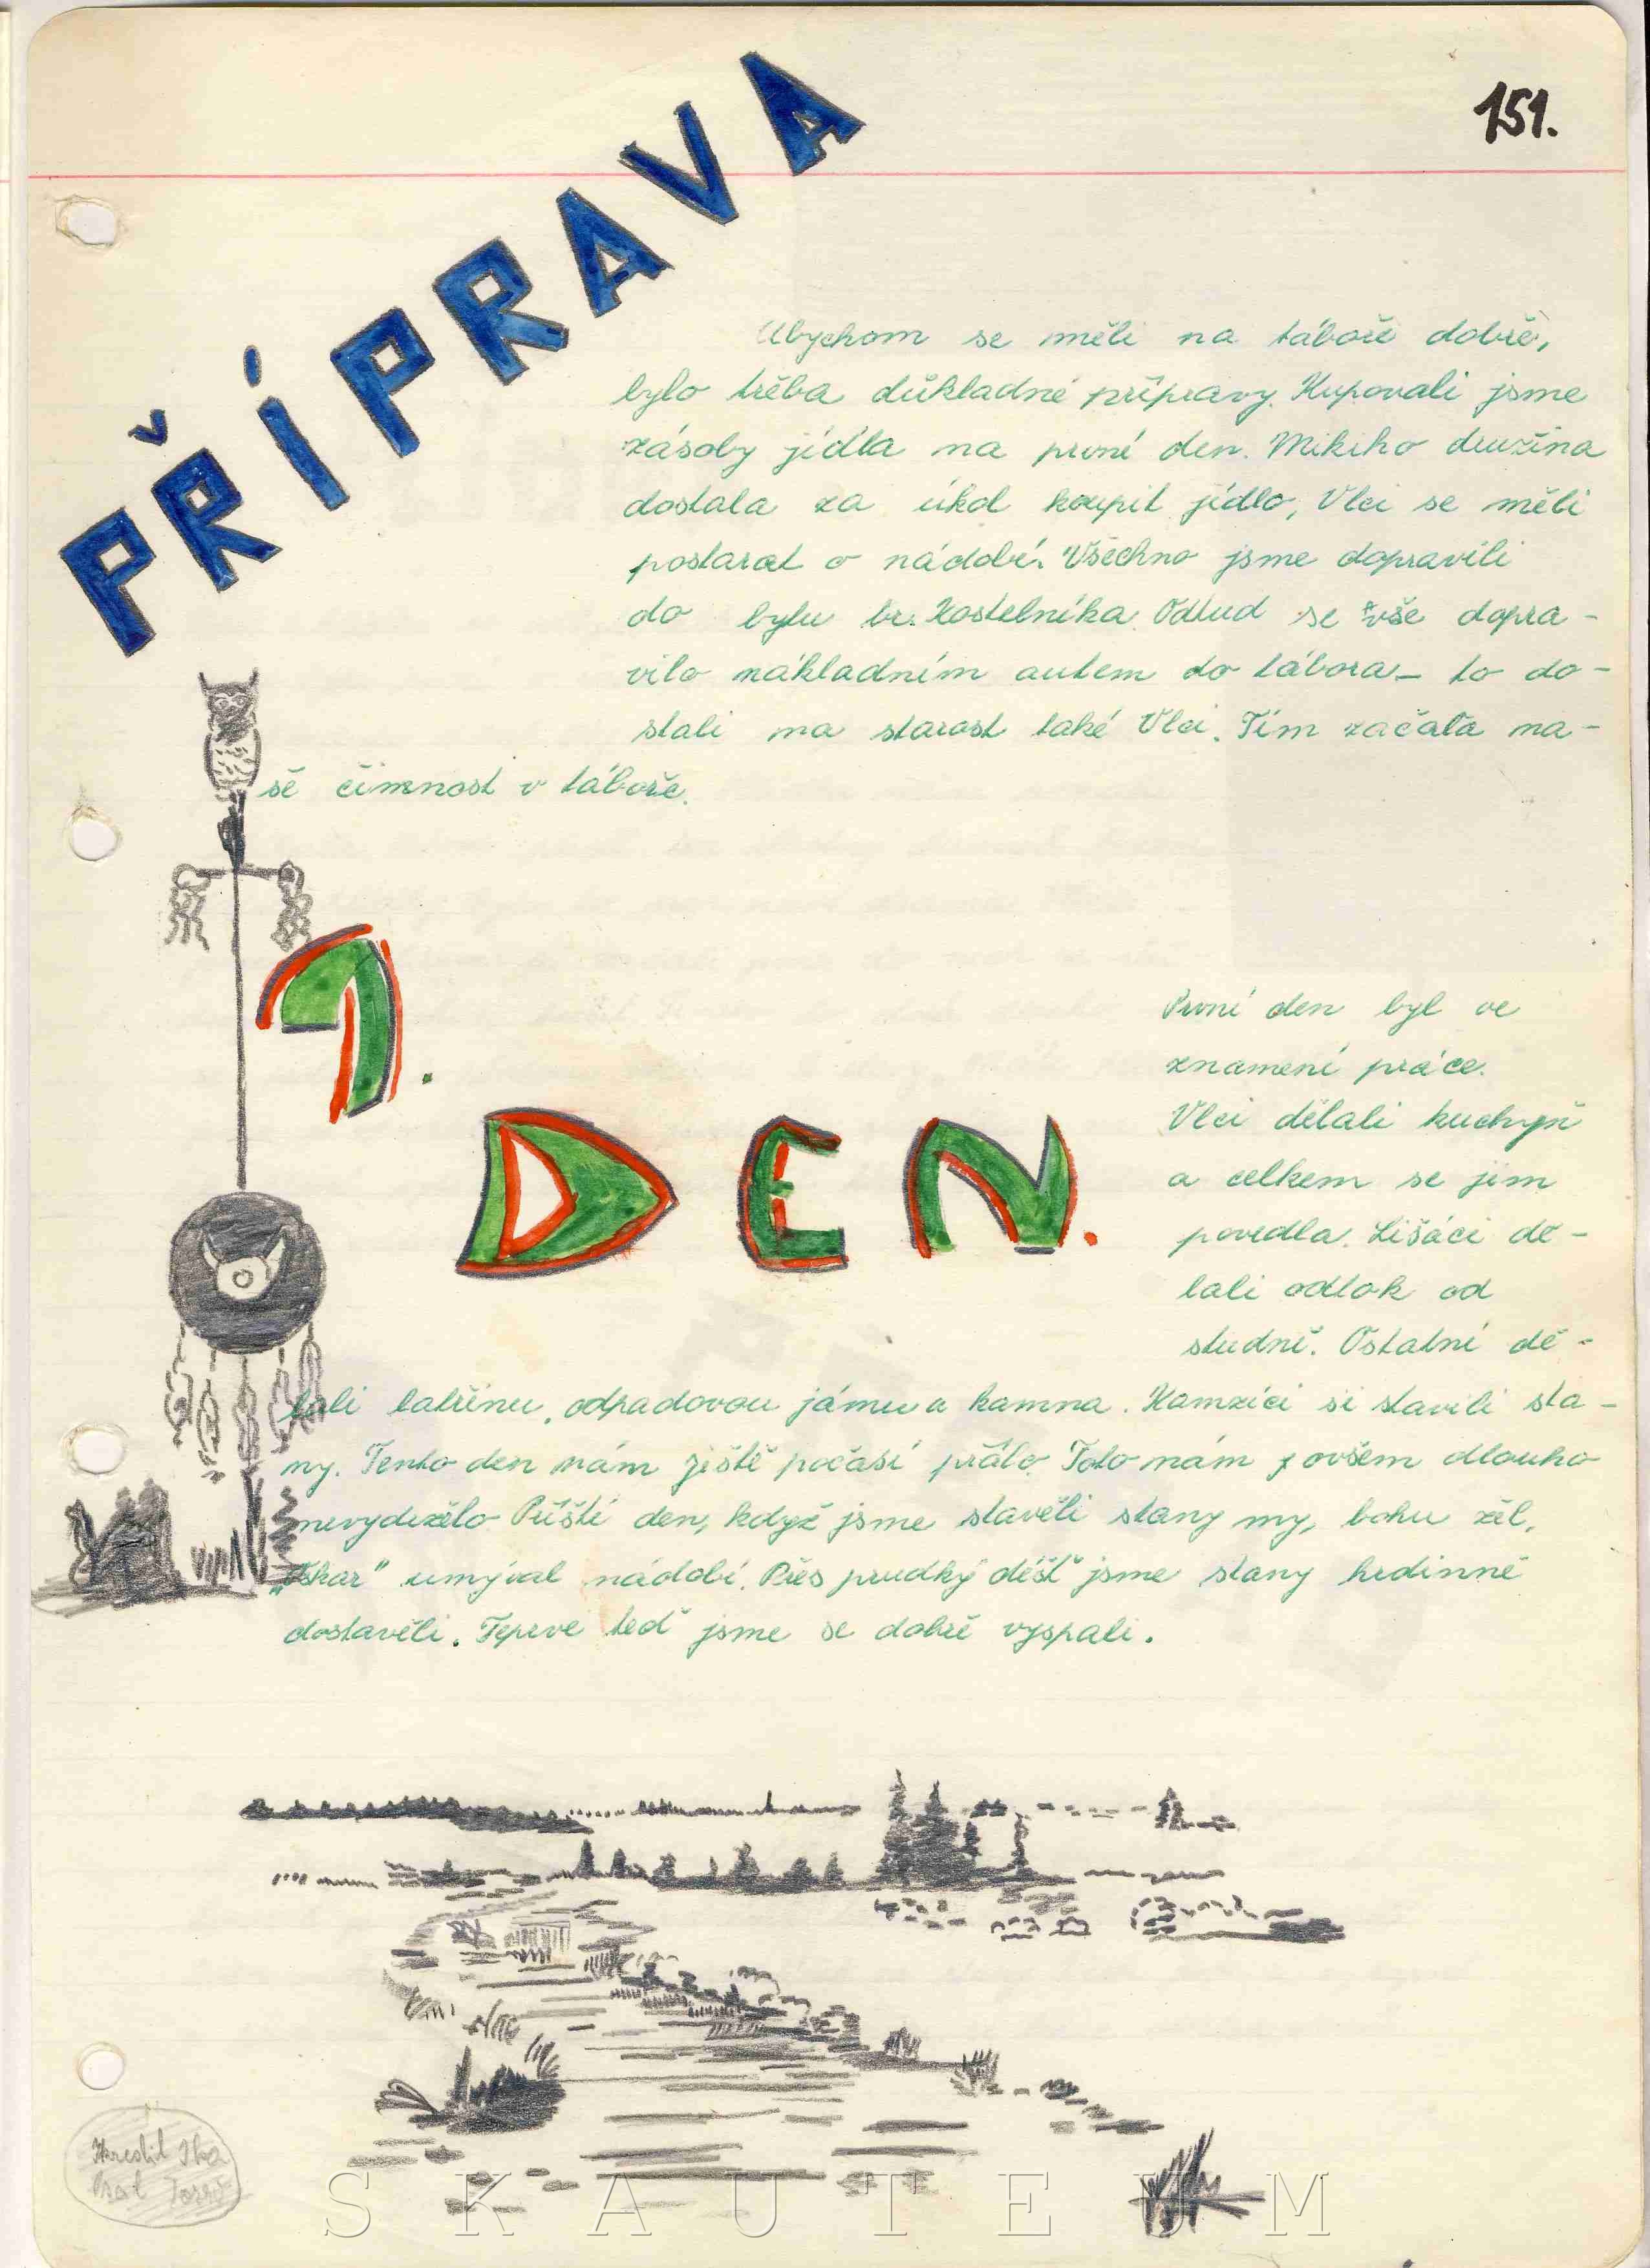 151.
PŘÍPRAVA
Abychom se měli na táboře dobře,
bylo třeba důkladné přípravy. Kupovali jsme
zásoby jídla na první den. Mikiho družina
dostala za úkol koupit jídlo, Vlci se měli
postarat o nádobí. Všechno jsme dopravili
do bytu br. Kostelníka. Odtud se vše dopra-
vilo nákladním autem do tábora - to do-
stali na starost také Vlci. Tím začala na-
še činnost v táboře.
1.
DEN.
První den byl ve
znamení práce.
Vlci dělali kuchyň
a celkem se jim
povedla. Lišáci dě-
lali odtok od
studně. Ostatní dě-
lali latrinu, odpadovou jámu a kamna. Kamzíci si stavili sta-
ny. Tento den nám ještě počasí přálo. Toto nám ovšem dlouho
nevydrželo. Příští den, když jsme stavěli stany my, bohu žel,
„Iskar" umýval nádobí. Přes prudký déšť jsme stany hrdinně
dostavěli. Teprve teď jsme se dobře vyspali.
Kreslil
Psal
SKAUTEUM